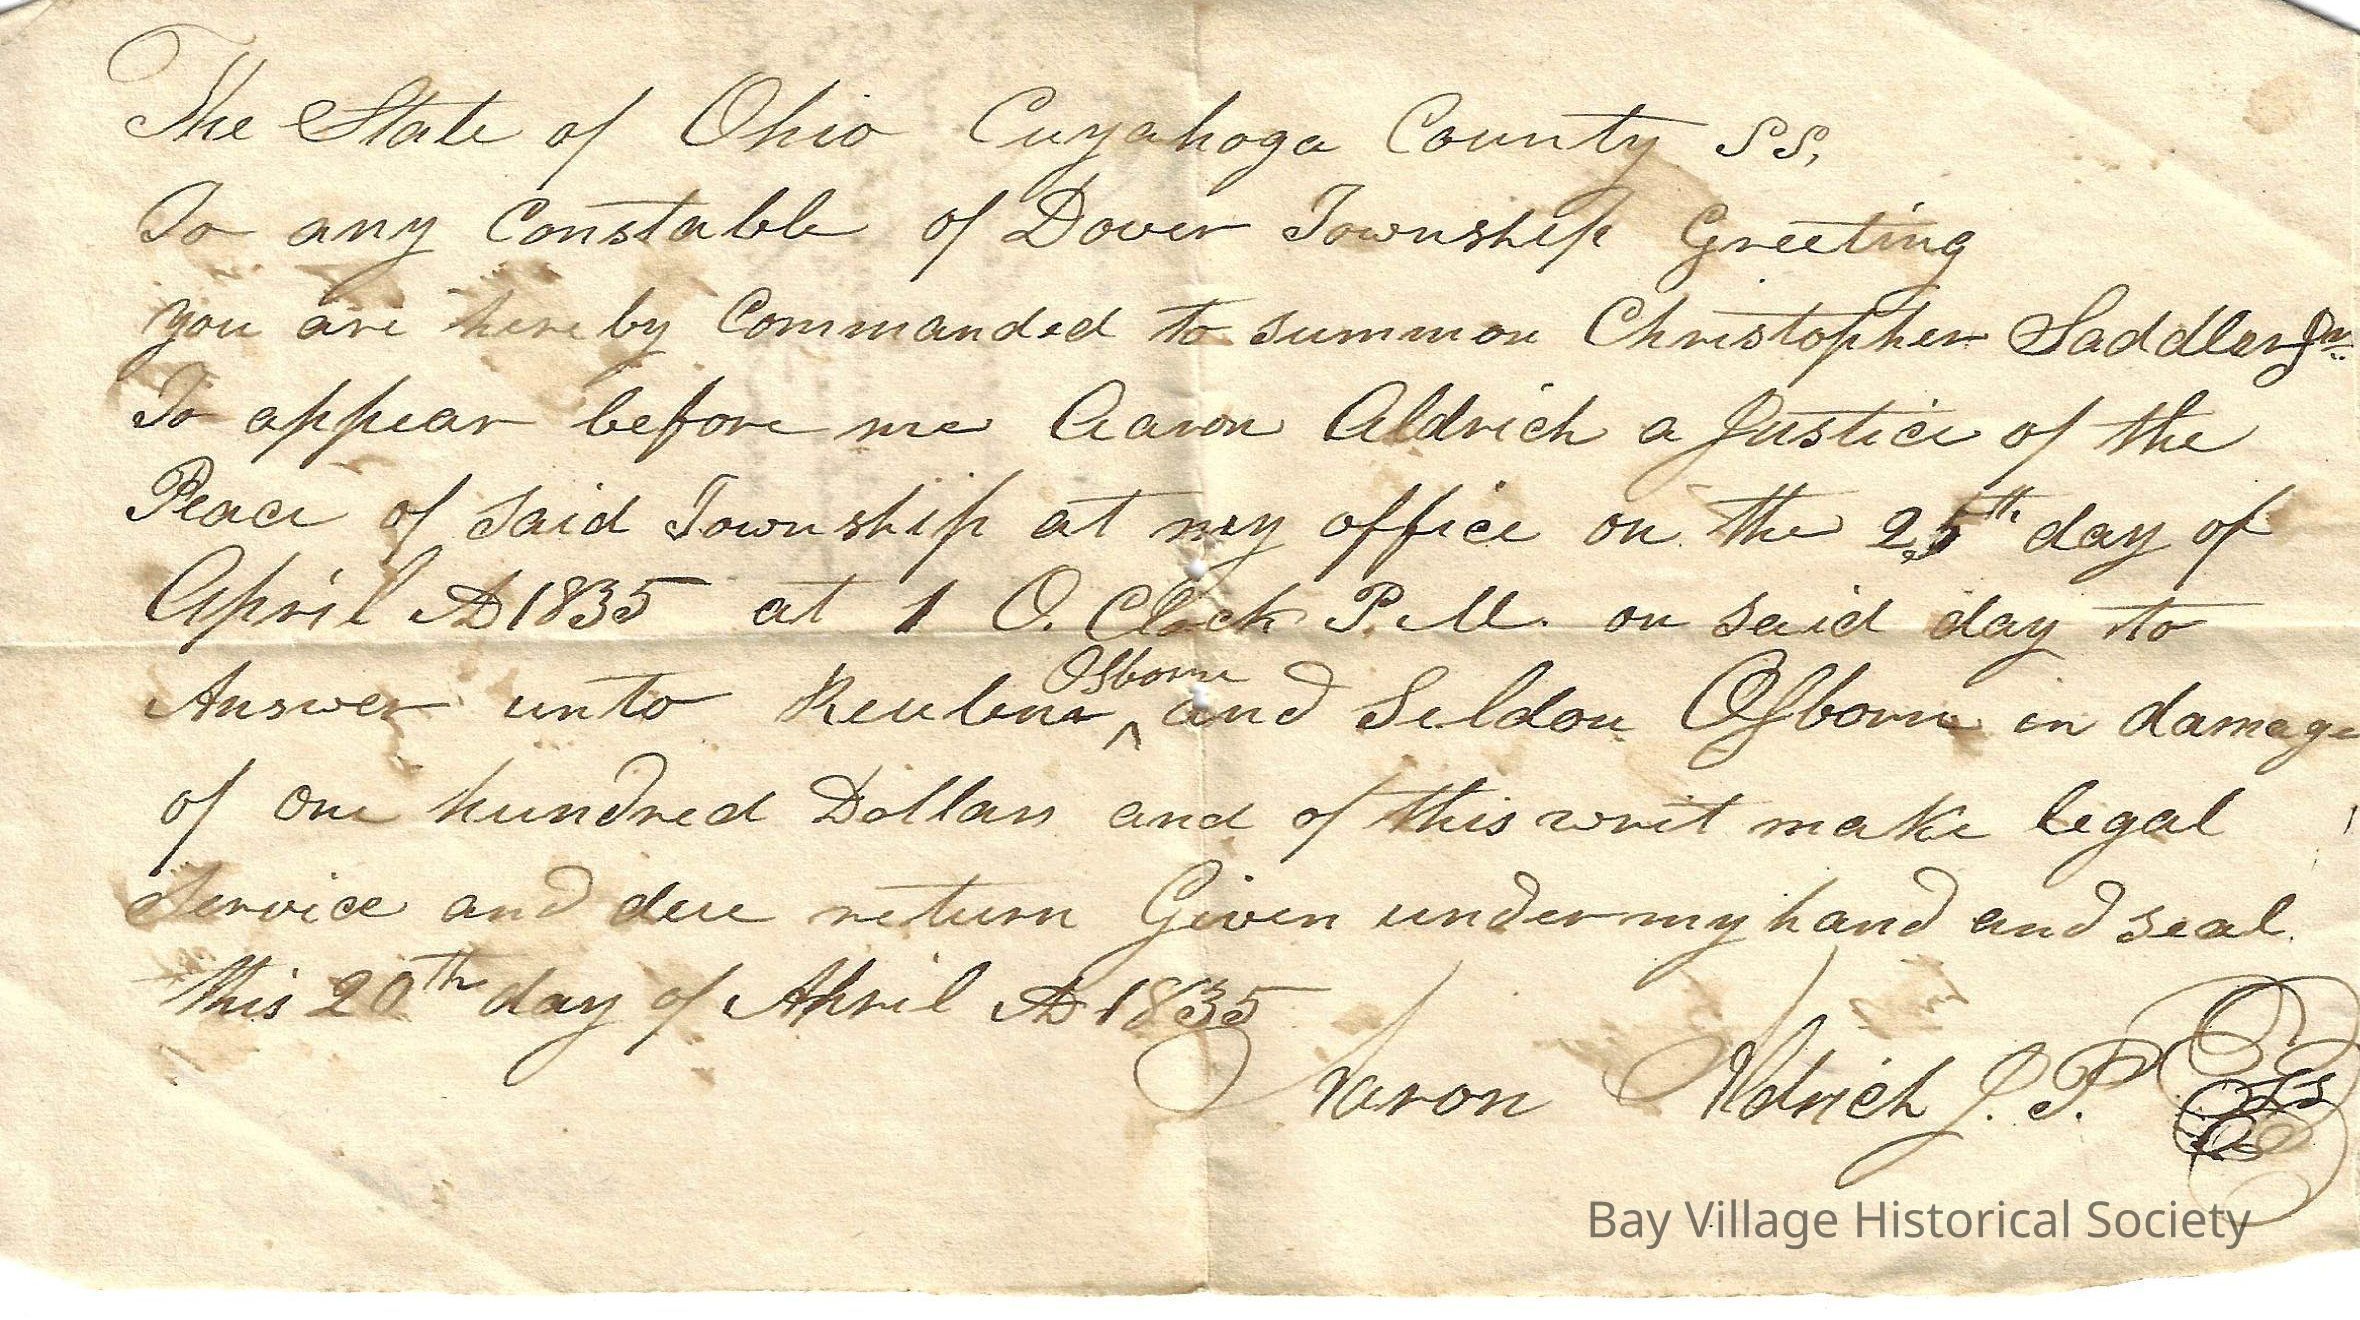 The State of Ohio Cuyahoga County SS,
To any Constable of Dover Township Greeting
you are hereby Commanded to summon Christopher Saddler Jr.
To appear before me Aaron Aldrich a Justice of the
Peace of said Township at my office on the 25th day of
April AD 1835 at 1 O. Clock P. M. on said day to
Osborn
Answer unto Reuben ^ and Seldon Osborn in damage
of one hundred Dollars and of this writ make legal
Service and due return Given under my hand and seal.
this 20th day of April AD 1835
Aaron Aldrich J. P. LS
Bay Village Historical Society